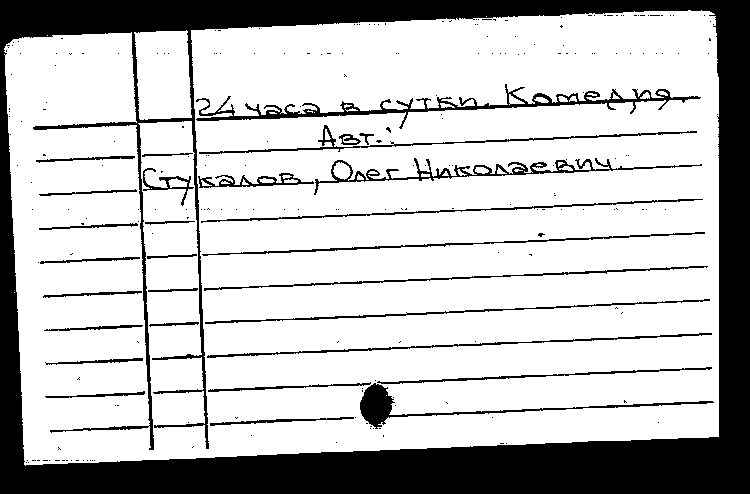 24 часа в сутки. Комедия.
Авт.:
Стукалов, Олег Николаевич.